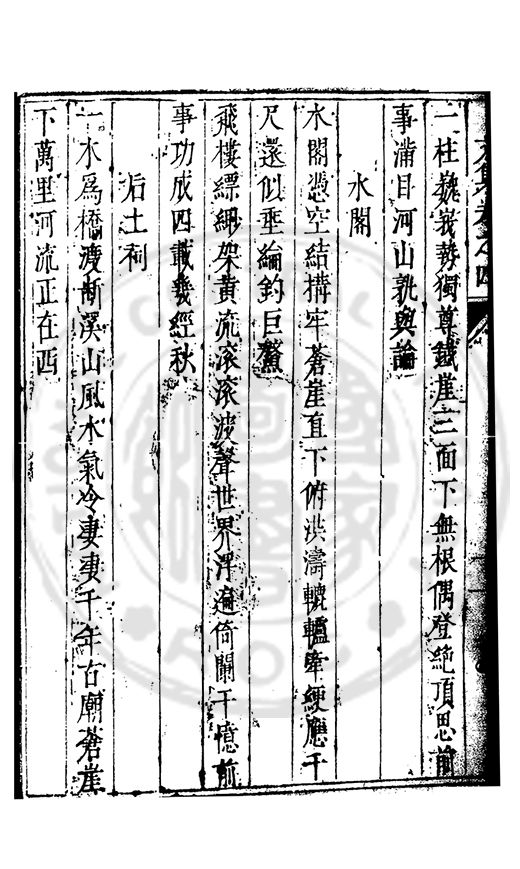 一柱巍峩勢獨尊鐵崖三面下無根偶登絶頂思前
事滿目河山孰與論
水閣
水閣憑空結搆牢蒼崖直下俯洪濤轆轤牽綆應千
尺還似垂綸釣巨鰲
飛樓縹緲架黄流滚滚波聲世界浮遍倚闌干憶前
事功成四載幾經秋
后土祠
一水爲橋渡斷溪山風水氣冷凄凄千年古廟蒼崖
下萬里河流正在西